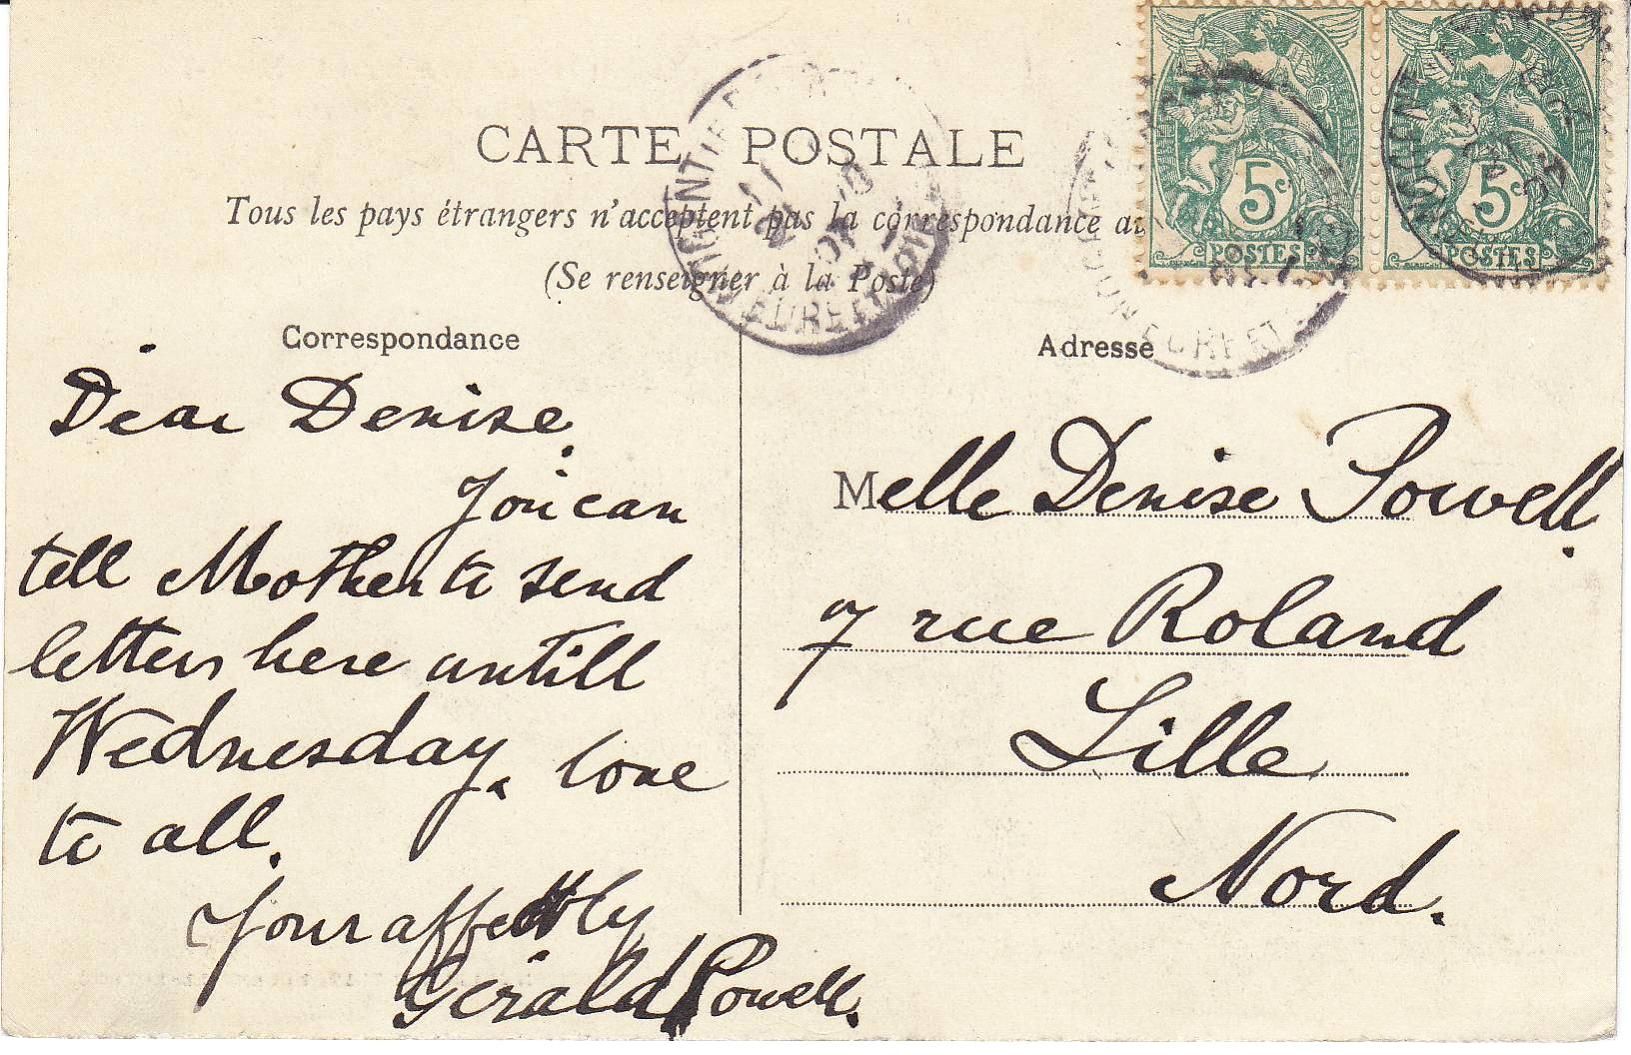 CARTE POSTALE
Tous les pays étrangers n'acceptent pas la correspondance au
(Se renseigner à la Poste)
Correspondance
Adresse
5c
POSTES
5c
POSTES
NOGENT
EURE ET
EURE ET
Dear Denise.
You can
tell Mother to send
letters here untill
Wednesday. love
to all.
Your affectly
Gerald Powell.
Melle Denise Powell.
7 rue Roland
Lille
Nord.